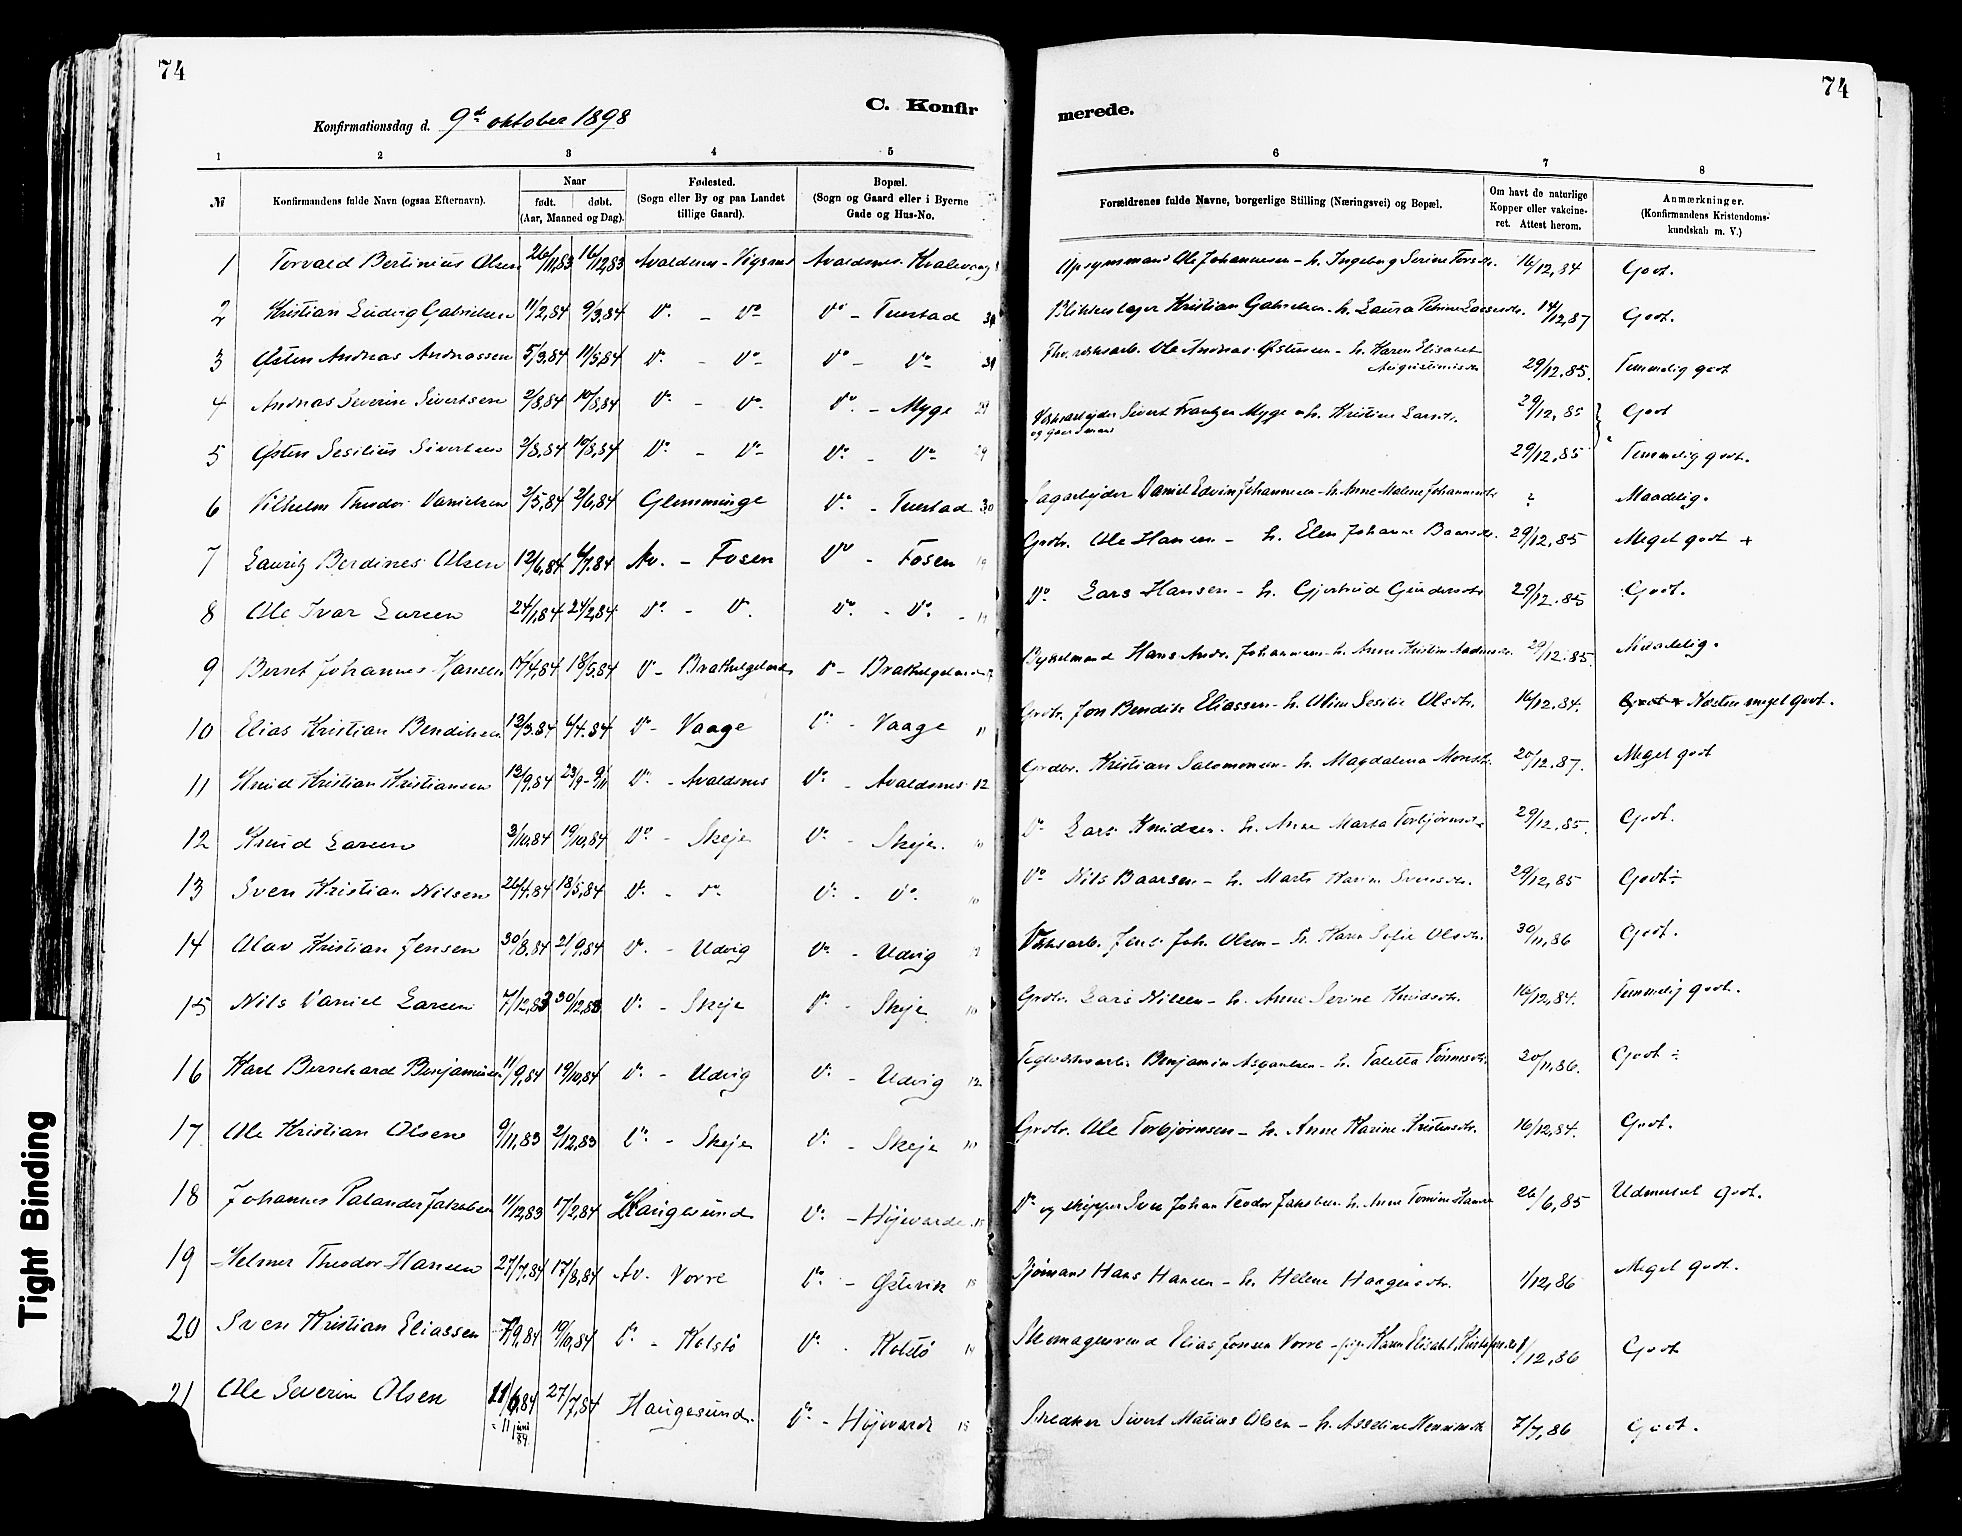 74
C. Konfir
Konfirmationsdag d. 9de oktober 1898
1 2 3 4 5
№ Konfirmandens fulde Navn (ogsaa Efternavn). Naar født. døbt. (Aar, Maaned og Dag). Fødested. (Sogn eller By og paa Landet tillige Gaard). Bopæl. (Sogn og Gaard eller i Byerne Gade og Hus-No.
1 Torvald Bertinius Olsen 26/11,83 16/12,83 Avaldsnes - Avaldsnes.
2 Kristian Ludvig Gabrielsen 11/2,84 9/3,84 Do. - Do Do - Tuestad
3 Østen Andreas Andreassen 5/3,84 11/5,84 Do. - Do Do - Do
4 Andreas Severin Sivertsen 2/8,84 10/8,84 Do - Do. Do. - Myge 29
5 Østen Sesilius Sivertsen 2/8,84 10/8,84 Do. - Do Do. - Do 29
6 Vilhelm Theodor Danielsen 2/5,84 2/6,84 Glemminge Do. - Tuestad 30
7 Lauritz Berdines Olsen 12/6,84 6/7.84 Av. - Fosen Do - Fosen 19
8 Ole Ivar Larsen 24/1,84 24/2,84 Do - Do. Do. - Do. - 19
9 Bernt Johannes Hansen 17/4,84 18/5.84 Do - Bratthelgeland Do - Bratthelgeland
10 Elias Kristian Bendiksen 12/3.84 6/4.84 Do - Vaage Do - Vaage 11
11 Knud Kristian Kristiansen 12/9,84 23/9 - 9/11 Do. - Avaldsnes Do. - Avaldsnes 12
12 Knud Larsen 3/10,84 19/10,84 Do - Skeje Do. - Skeje. 10
13 Sven Kristian Nilsen 26/4.84 18/5,84 Do. - do. Do. - Do. 10
14 Olav Kristian Jensen 30/8.84 21/9.84 Do. - Udvig Do. - Udvig 12
15 Nils Daniel Larsen 7/12,83 30/12,83 Do. - Skeje Do. - Skeje 10
16 Karl Bernhard Benjaminsen 11/9,84 19/10,84 Do. - Udvig Do. - Udvig 12
17. Ole Kristian Olsen 9/11,83 2/12,83 Do. - Skeje Do. - Skeje 10
18 Johannes Palander Jakobsen 11/12,83 17/2,84 Haugesund Do. - Højevarde 15
19 Helmer Theodor Hansen 27/7,84 17/8,84 Av. Vorre Do. - Østevik 15
20 Sven Kristian Eliassen 7/9,84 19/10,84 Do. - Kolstø Do. - Kolstø 14
21 Ole Severin Olsen 11/6,84 27/7,84 Haugesund. Do. - Højevarde 15
= 11 juni 84
74
merede.
6 7 8
Forældrenes fulde Navne, borgerlige Stilling (Næringsvei) og Bopæl. Om havt de naturlige Kopper eller vakcineret. Attest herom. Anmærkninger. (Konfirmandens Kristendomskundskab m. V.)
Opsynsmand Ole Johannesen - h. Ingeborg Serine Torsdtr. 16/12,84 Godt.
Blikkenslager Kristian Gabrielsen - h. Laura Petrine Larsdtr. 14/12,87 Godt.
Ole Andreas Østensen - h. Karen Elisabet Augustinusdtr 29/12.85. Temmelig godt
Værksarbejder Sivert Frantzen Myge - h. Kristine Larsdtr. 29/12,85 Godt
og gaardmand
29/12,85 Temmelig godt.
Sagarbejder Daniel Edvin Johannesen - h. Anne Malene Johannesdtr ? Maadelig.
Grdbr. Ole Hansen - h. Elen Johanne Baarsdtr. 29/12,85 Meget godt +
Do. Lars Hansen - h. Gjertrud Gundersdtr. 29/12.85 Godt.
Hans Andr. Johannesen - h. Anne Kristine 29/12.85. Maadelig.
Grdbr. Jon Bendik Eliassen - h. Oline Sesilie Olsdtr. 16/12,84. Næsten meget godt.
Grdbr. Kristian Salomonsen - h. Magdalena Monsdtr. 20/12.87. Meget godt
Do. Lars Knudsen - h. Anne Marta Torbjørnsdtr 29/12,85. Godt.
Do Nils Baarsen - h. Marta Karine Svensdtr. 29/12,85 Godt ÷
Værksarb. Jens Joh. Olsen - h. Karen Sofie Olsdtr. 30/11,86 Godt.
Grdbr. Lars Nilsen - h. Anne Serine Knudsdtr. 16/12,84. Temmelig godt.
Teglværksarb. Benjamin Asgautsen - h. Taletta Tønnesdtr. 20/11,86. Godt ÷
Grdbr. Ole Torbjørnsen - h. Anne Karine Kristensdtr. 16/12,84. Godt.
Do og skipper Sven Johan Teodor Jakobsen h. Anne Tomine Hansdtr 26/6,85 Udmerket godt.
Sjømand Hans Hansen - h. Helene Haagensdtr. 1/12,86 Meget godt.
Skomagersvend Elias Jonsen Vorre - pige Karen Elisabet Kristofersdtr 1/12,86 Godt
Skredder Sivert Matias Olsen - h. Asseline 7/7,86 Godt.
Tight Binding